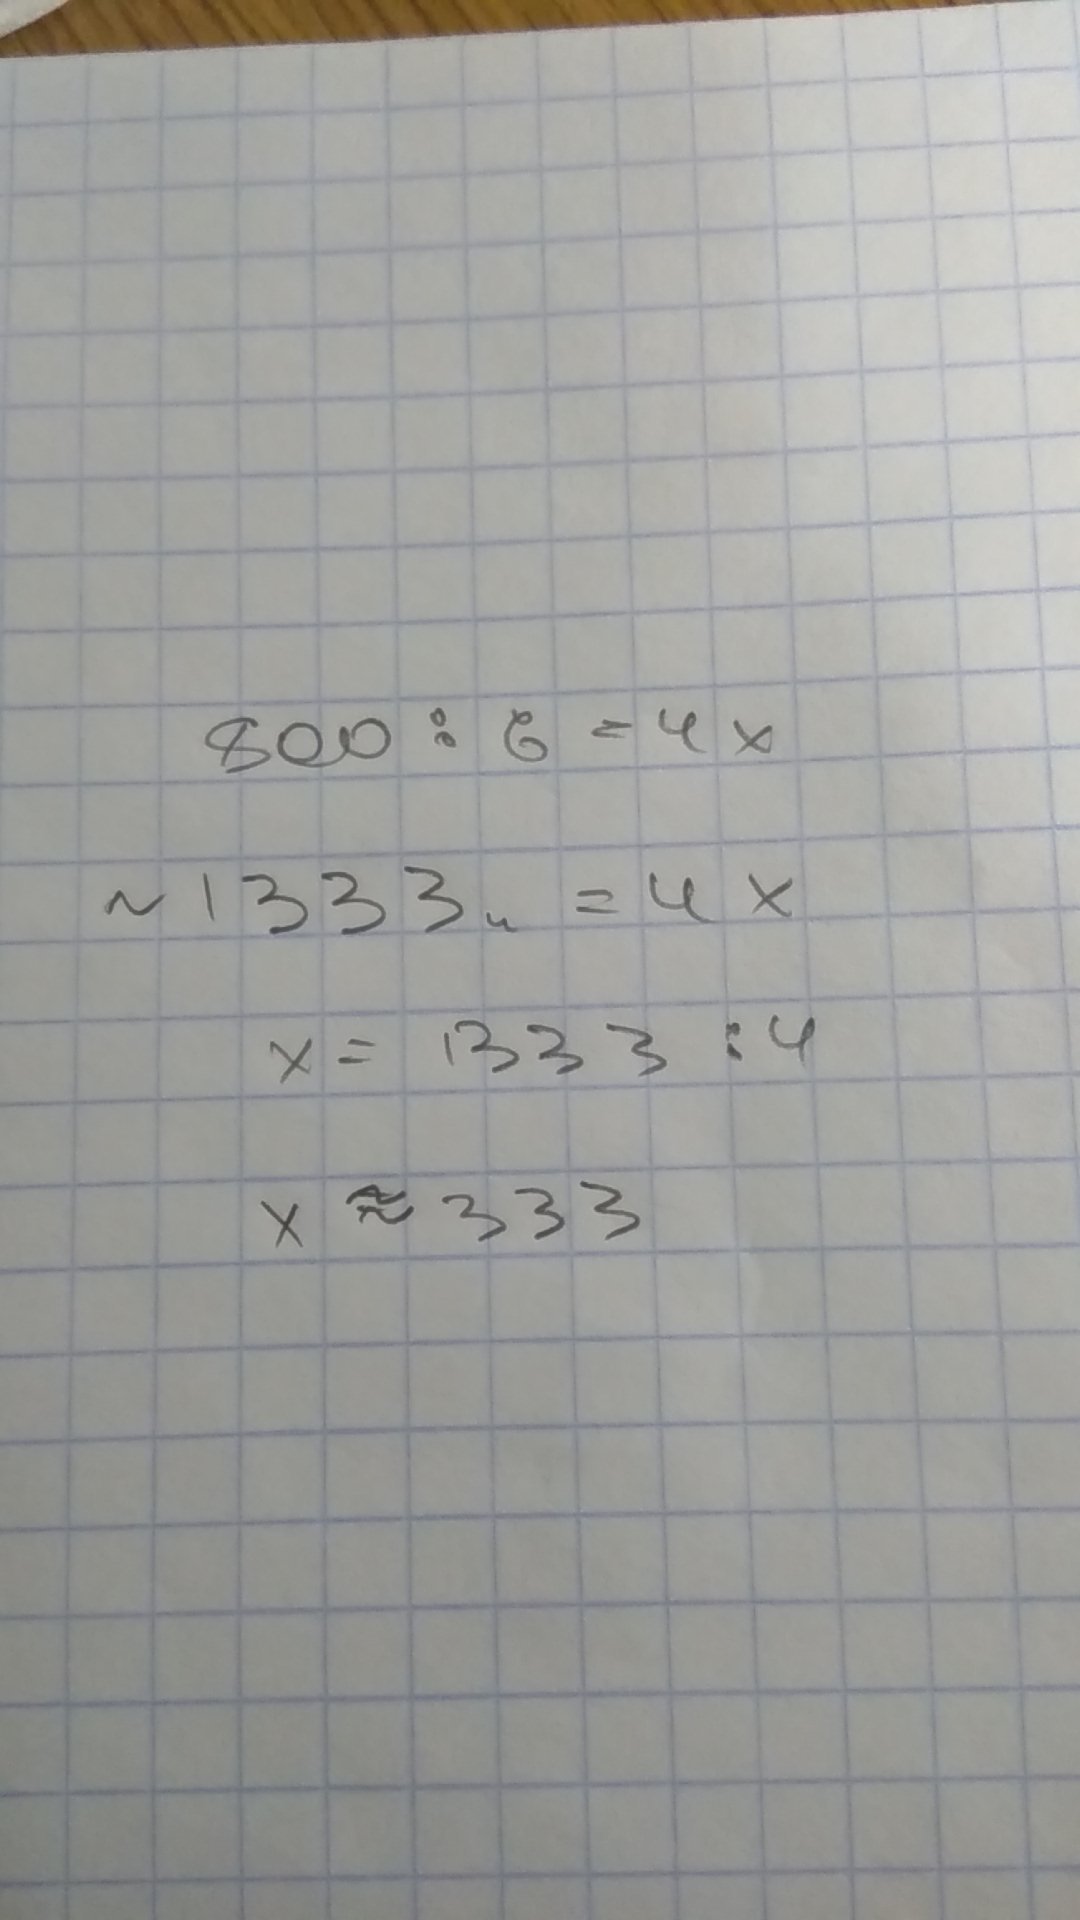 800 : 6 = 4x
~1333.. = 4x
x = 1333 : 4
x ≈ 333